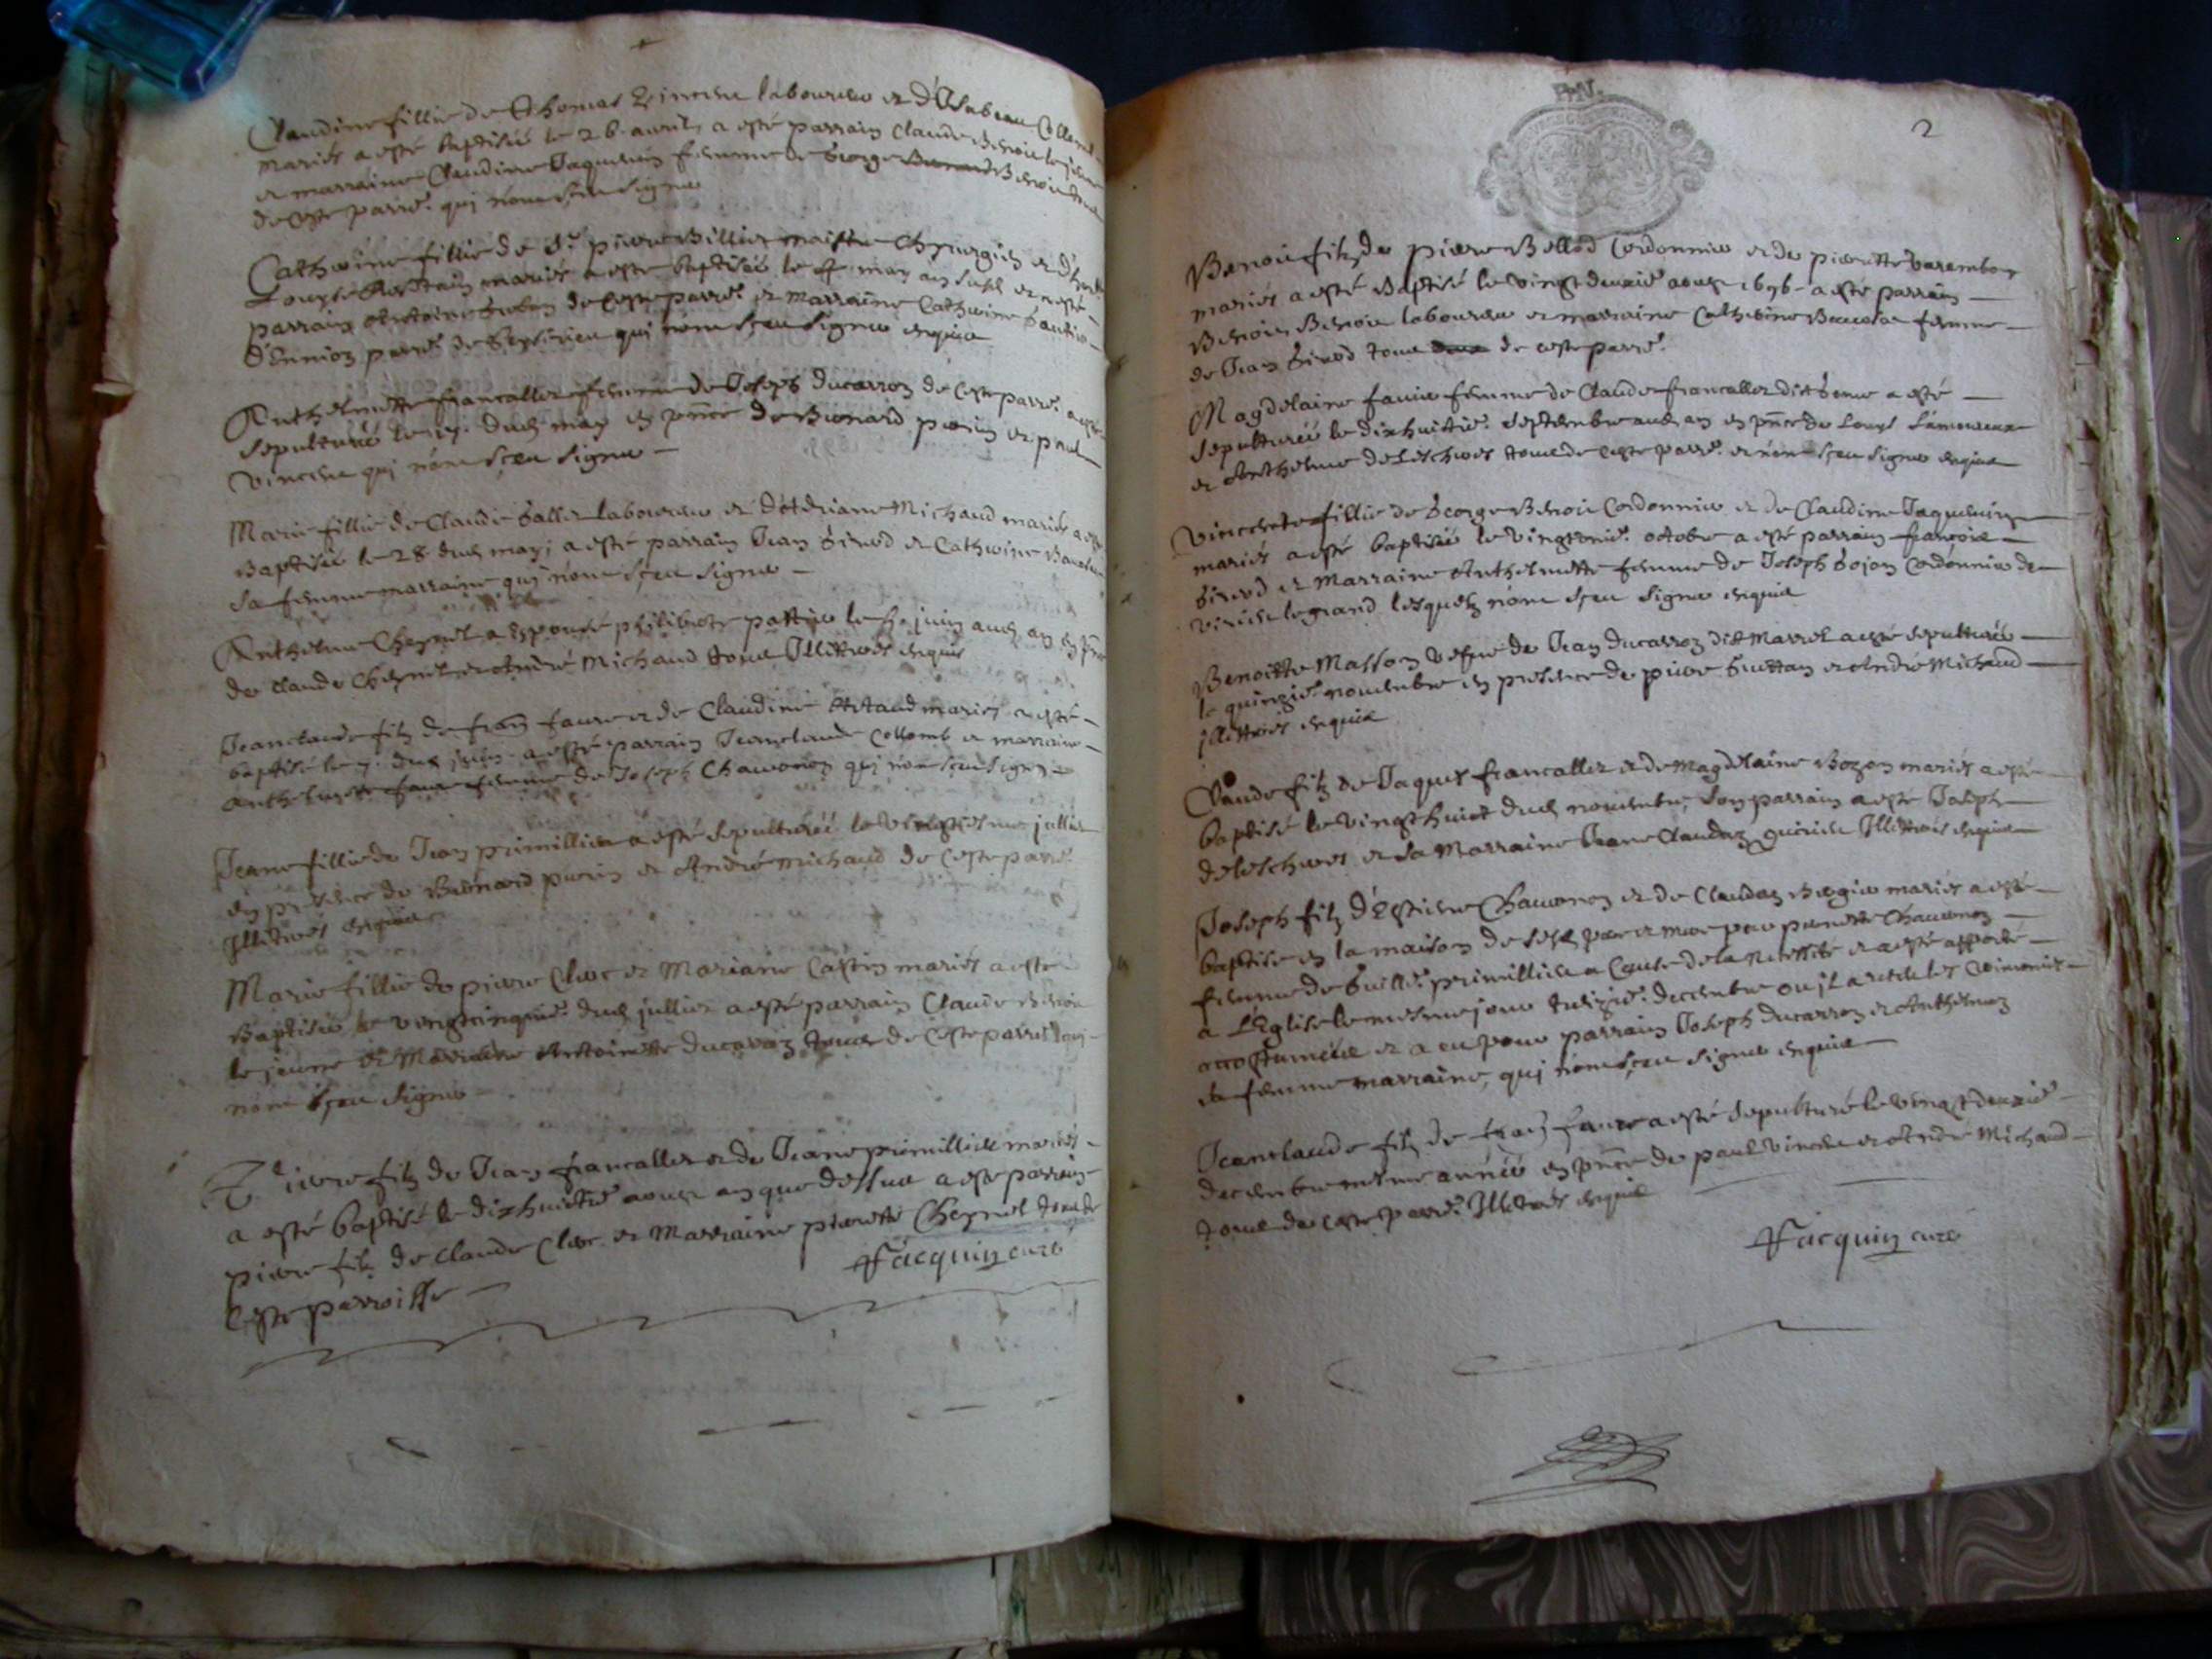 Claudine fillie de Thomas Vincent laboureur et d'Isabeau
mariés a esté baptisée le 26 avril, a esté parrain Claude Benoit le jeune
et marraine Claudine Jaquemin femme de George Benoit tous
de ceste parr.e qui n'ont sçeu signer
Catherine fillie de Sr. pierre Billiet maistre Chyrurgien et d'
Louyse mariés a esté baptisée le may an susd. et a esté
parrain Antoine de ceste parr.e et marraine Catherine
d'Ennion parr.e de qui n'ont sçeu signer enquis
Anthelmette francallet femme de Joseph ducarroz de ceste parr.e a esté
sepulturée le 17. dud. may en pnce de Bernard perrin et paul
vincent qui n'ont sçeu signer
Marie fillie de Claude Gallet laboureur et d'Adriane Michaud mariés a esté
Baptisée le 28 dud. may; a esté parrain Jean Girod et Catherine
sa femme marraine qui n'ont sçeu signer
Anthelme Cheynel a espousé philiberte le juin aud. an en pnce
de Claude Cheynel et André Michaud tous Illitteres enquis
Jeanclaude filz de fran faure et de Claudine Artaud mariés a esté
baptisé le 7. dud. juin a esté parrain Jeanclaude Collomb et marraine
Anthelmette faure femme de Joseph Chawonon qui n'ont sçeu signer
Jeane fillie de Jean primilliet a esté sepulturée le vingtiesme jullet
en présence de Bernard perrin et André Michaud de ceste parr.e
Illiteres enquis
Marie fillie de pierre Clerc et Mariane Castin mariés a esté
Baptisée le vingtcinquie. dud. jullet a esté parrain Claude Benoit
le jeune et Marraine Antoinette ducarroz tous de ceste parroisse
n'ont sçeu signer
Pierre filz de Jean francallet et de Jeane primilliet mariés
a esté baptisé le dixhuitie. aoust an que dessus a esté parrain
pierre filz de Claude Clerc et Marraine pierrette Cheynel tous de
Ceste parroisse
Jacquin curé
2
Benoit filz de pierre Bellod Cordonnier et de pierrette varembon
mariés a esté Baptisé le vingt deuxie. aoust 1696 a esté parrain
Benoit Benoit laboureur et marraine Catherine femme
de Jean Girod tous de ceste parr.e
Magdelaine faure femme de Claude francallet dit a esté
sepulturée le dixhuitie. septembre aud. an en pnce de Louys Lamoureux
et Anthelme deleschoes tous de ceste parr.e et n'ont sçeu signer enquis
Vincente fillie de George Benoit Cordonnier et de Claudine Jaquemin
mariés a esté baptisée le vingtonie. octobre a esté parrain françois
Girod et Marraine Anthelmette femme de Joseph Gojon Cordonnier de
virieu le grand lesquelz n'ont sçeu signer enquis
Benoitte Masson vefve de Jean ducarroz dit Marrel a esté sepulturée
le quinzie. novembre en presence de pierre Guettan et André Michaud
jllitteres enquis
Claude filz de Jaques francallet et de Magdelaine Bozon mariés a esté
baptisé le vingthuict dud. novembre, son parrain a esté Joseph
deleschoes et sa Marraine Jeane Claudaz Illitterés enquis
Joseph filz d'Estiene Chawonon et de Claudaz mariés a esté
baptisé en la maison de sesd. pere et mere par pernette Chawonon
femme de Guill.e primilliet a Cause de la necessité et a esté apporté
a L'Eglise le mesme jour treizie. decembre ou jl a receu les ceremonies
accostumées et a eu pour parrain Joseph ducarroz et Anthelmaz
sa femme marraine, qui n'ont sçeu signer enquis
Jeanclaude filz de fran faure a esté sepulturé le vingt deuxie.
decembre mesme année en pnce de paul vincent et André Michaud
tous de ceste parr.e Illiterés enquis
Jacquin curé